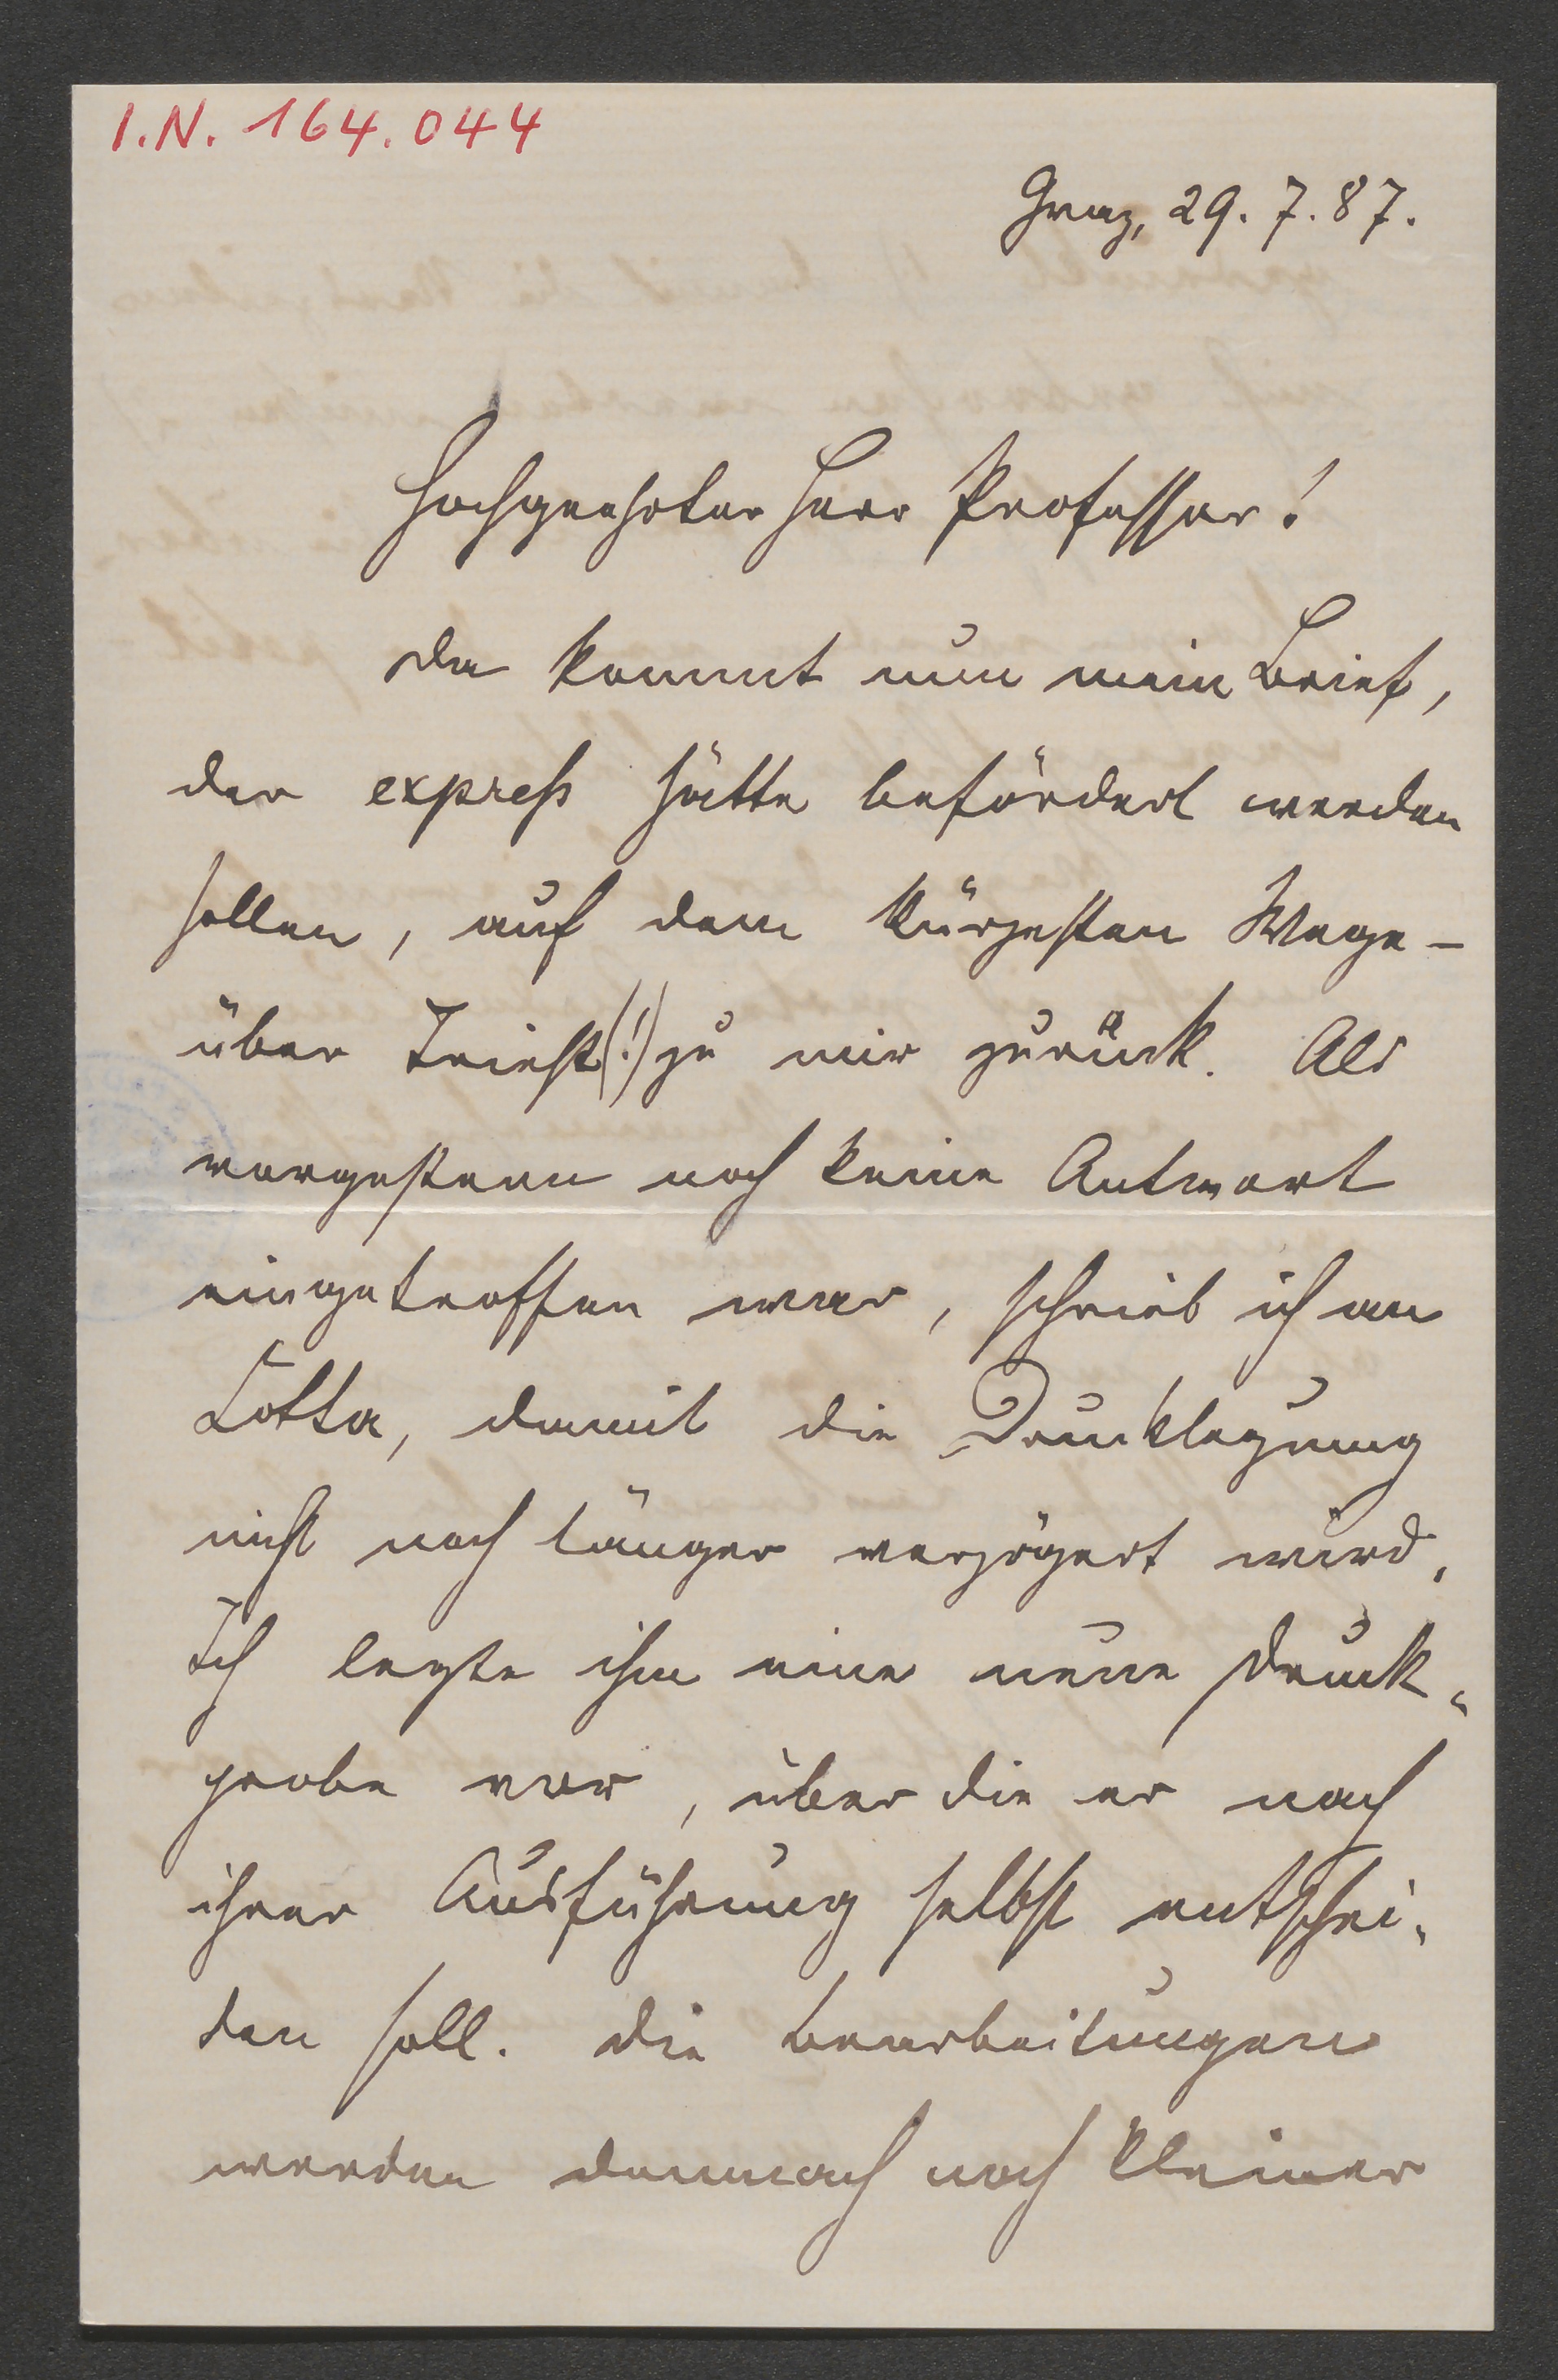 I.N. 164.044
Graz, 29. 7. 87.
Hochgeehrter Herr Professor!
Da kommt nun mein Brief,
der expreß hätte befördert werden
sollen, auf dem kürzesten Wege –
über Triest (!) zu mir zurück. Als
vorgestern noch keine Antwort
eingetroffen war, schrieb ich an
Cotta, damit die Drucklegung
nicht noch länger verzögert wird.
Ich legte ihm eine neue Druck-
probe vor, über die er nach
ihrer Ausführung selbst entschei-
den soll. Die Bearbeitungen
werden demnach noch kleiner